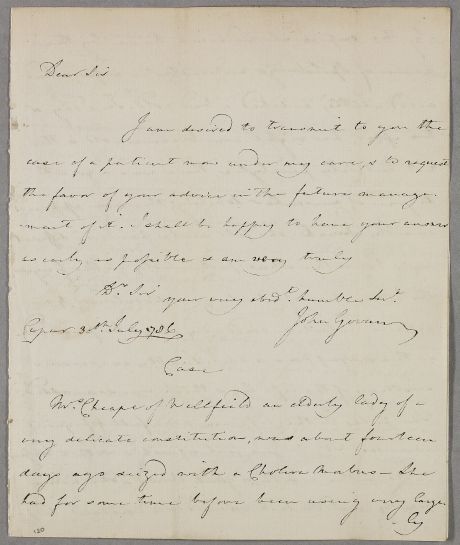 Dear Sir
I am desired to transmit to you the
case of a patient now under my care, & to request
the favor of your advice in the future manage-
-ment of it. I shall be happy to have your answer
as early as possible & am very truly
Dr. Sir
your very obedt. humble Sert.
Cupar 30th. July 1786 John Govan
Case
Mrs. Cheape of Wellfield an elderly lady of a
very delicate constitution, was about fourteen
days ago seized with a Cholera Morbus - She
had for some time before been using very large-
-ly